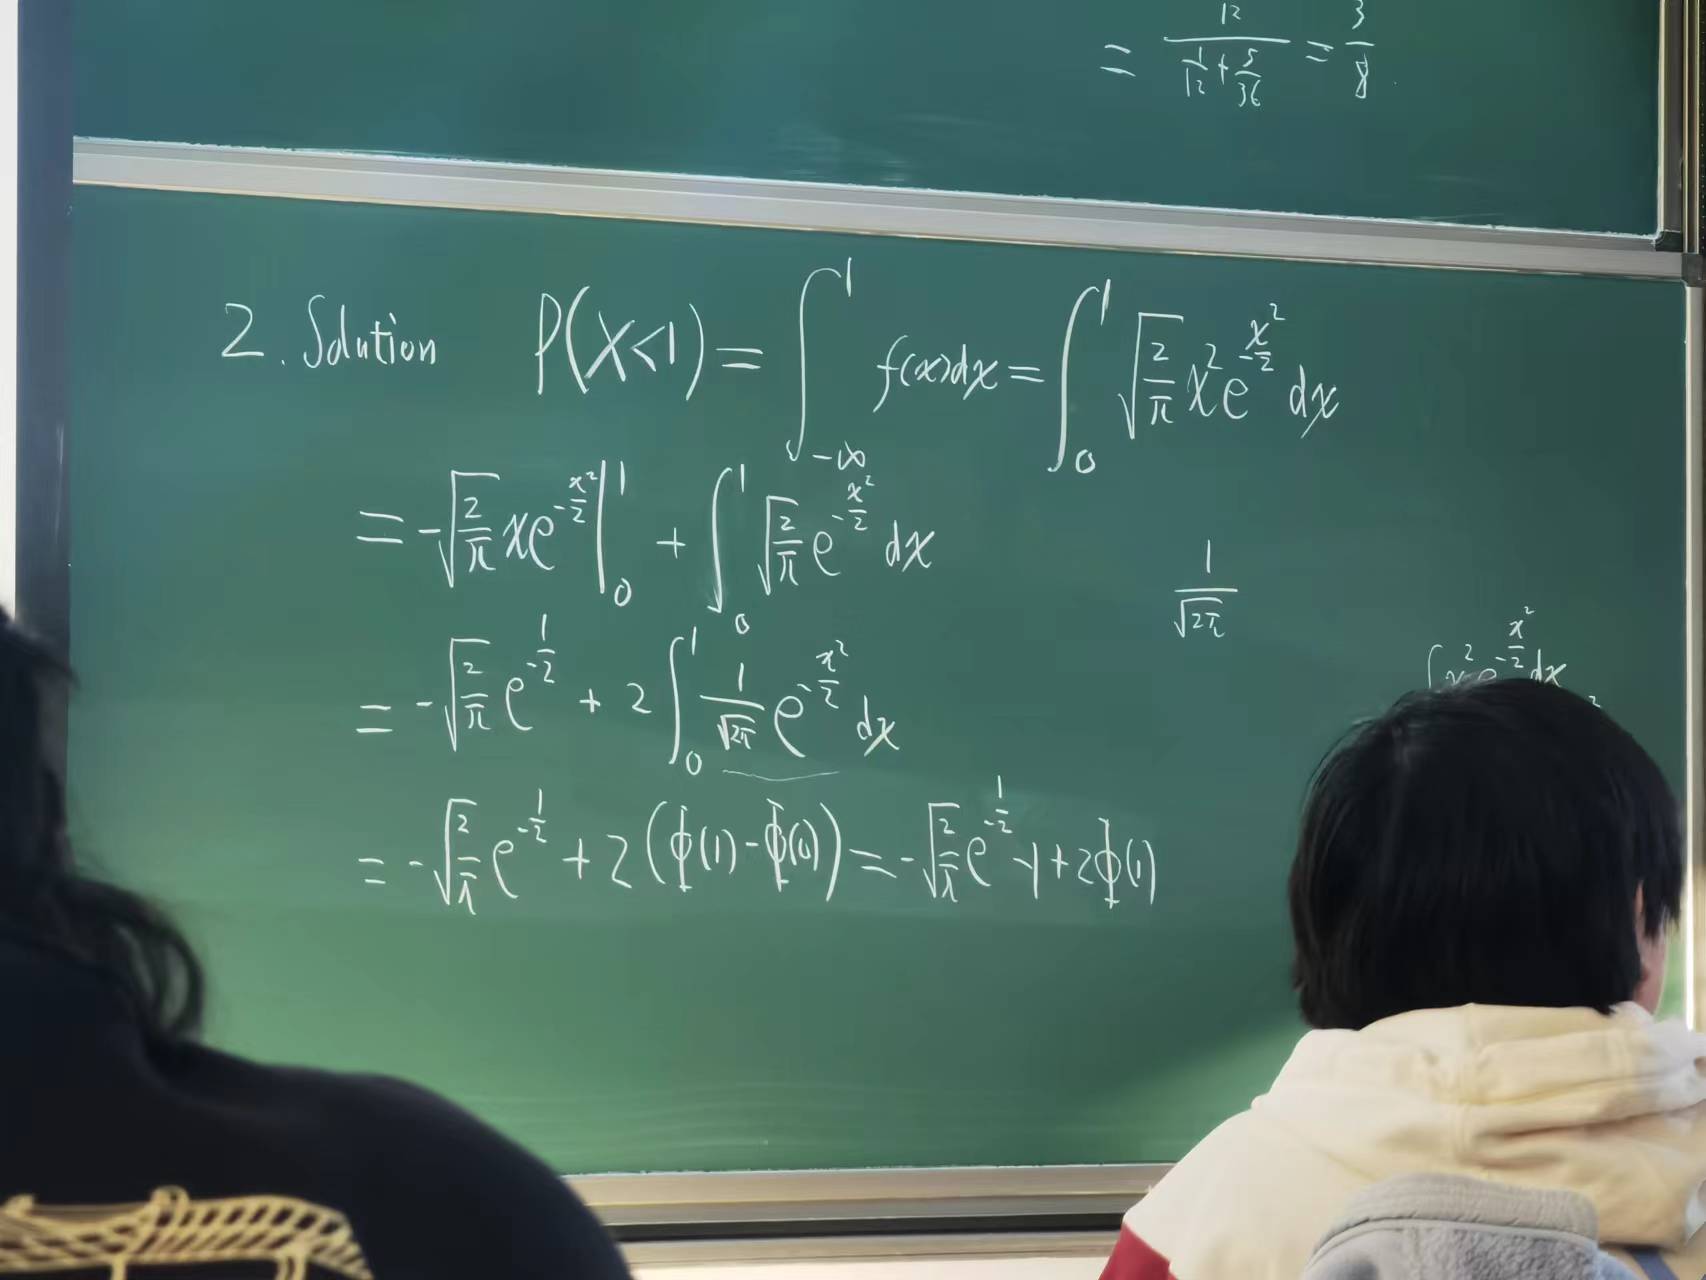 = 12/(1/12 + 5/36) = 3/8.
2. Solution P(X<1) = ∫_{-∞}^{1} f(x)dx = ∫_0^1 √(2/π) x² e^{-x²/2} dx
= -√(2/π) x e^{-x²/2} |_0^1 + ∫_0^1 √(2/π) e^{-x²/2} dx
1/√(2π)
= -√(2/π) e^{-1/2} + 2 ∫_0^1 1/√(2π) e^{-x²/2} dx
∫ x² e^{-x²/2} dx
= -√(2/π) e^{-1/2} + 2(Φ(1) - Φ(0)) = -√(2/π) e^{-1/2} - 1 + 2Φ(1)